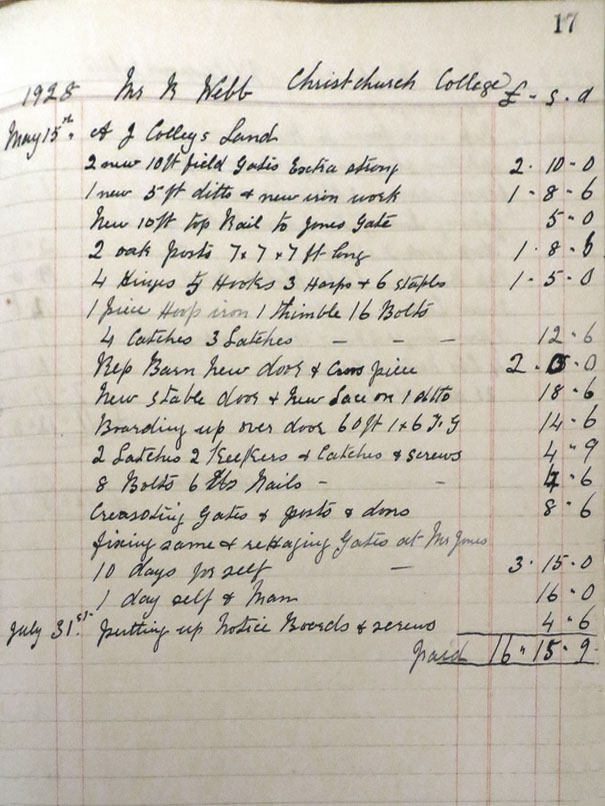 17
1928 Mr R Webb Christchurch College £ - s - d
May 15th. At J Colleys Land
2 new 10ft field Gates Extra strong 2 - 10 - 0
1 new 5ft ditto & new iron work 1 - 8 - 6
New 10ft top Rail to Jones Gate 5 - 0
2 oak posts 7 x 7 x 7 ft long 1 - 8 - 6
4 Hinges 5 Hooks 3 Hasps & 6 staples 1 - 5 - 0
1 piece Hoop iron 1 thimble 16 Bolts
4 Catches 3 Latches - - - 12 - 6
Rep Barn New door & Cross piece 2 - 0
New stable door & New on 1 ditto 18 - 6
Boarding up over door 60ft 1 x 6 T.G 14 - 6
2 Latches 2 Keepers & Catches & screws 4 - 9
8 Bolts 6 lbs Nails - - 4 - 6
Creasoting Gates & posts & doors 8 - 6
fixing same & rehanging Gates at Mr Jones
10 days for self - 3 - 15 - 0
1 day self & Man 16 - 0
July 31st. putting up Notice Boards & screws 4 - 6
paid 16 - 15 - 9